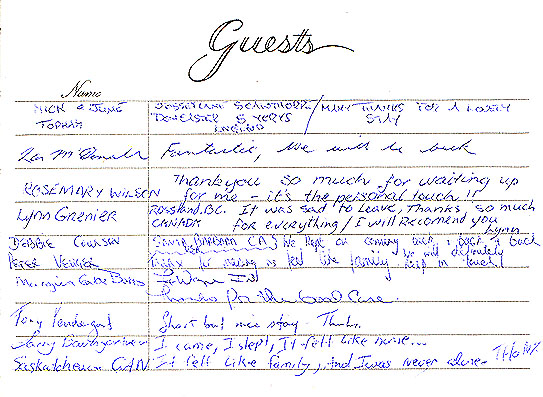 Guests
Name
MICK & JUNE
TOPHAM
DONCASTER S YORKS
ENGLAND
MANY THANKS FOR A LOVELY
STAY
Ian McDonald Fantastic, We will be back
ROSEMARY WILSON Thankyou so much for waiting up
for me - it's the personal touch
LYNN GRENIER ROSSLAND, B.C. It was sad to leave, Thanks so much
CANADA for everything / I will Recomend you
Lynn
DEBBIE SANTA BARBARA CA We kept on coming back, & back & back
PETER for making us feel like family we will definitely
keep in touch
Thanks for the Good Care.
Tony Short but nice stay Thanks.
Larry I came, I slept, It felt like home...
Saskatchewan CAN It felt Like family, And I was never alone. THANX